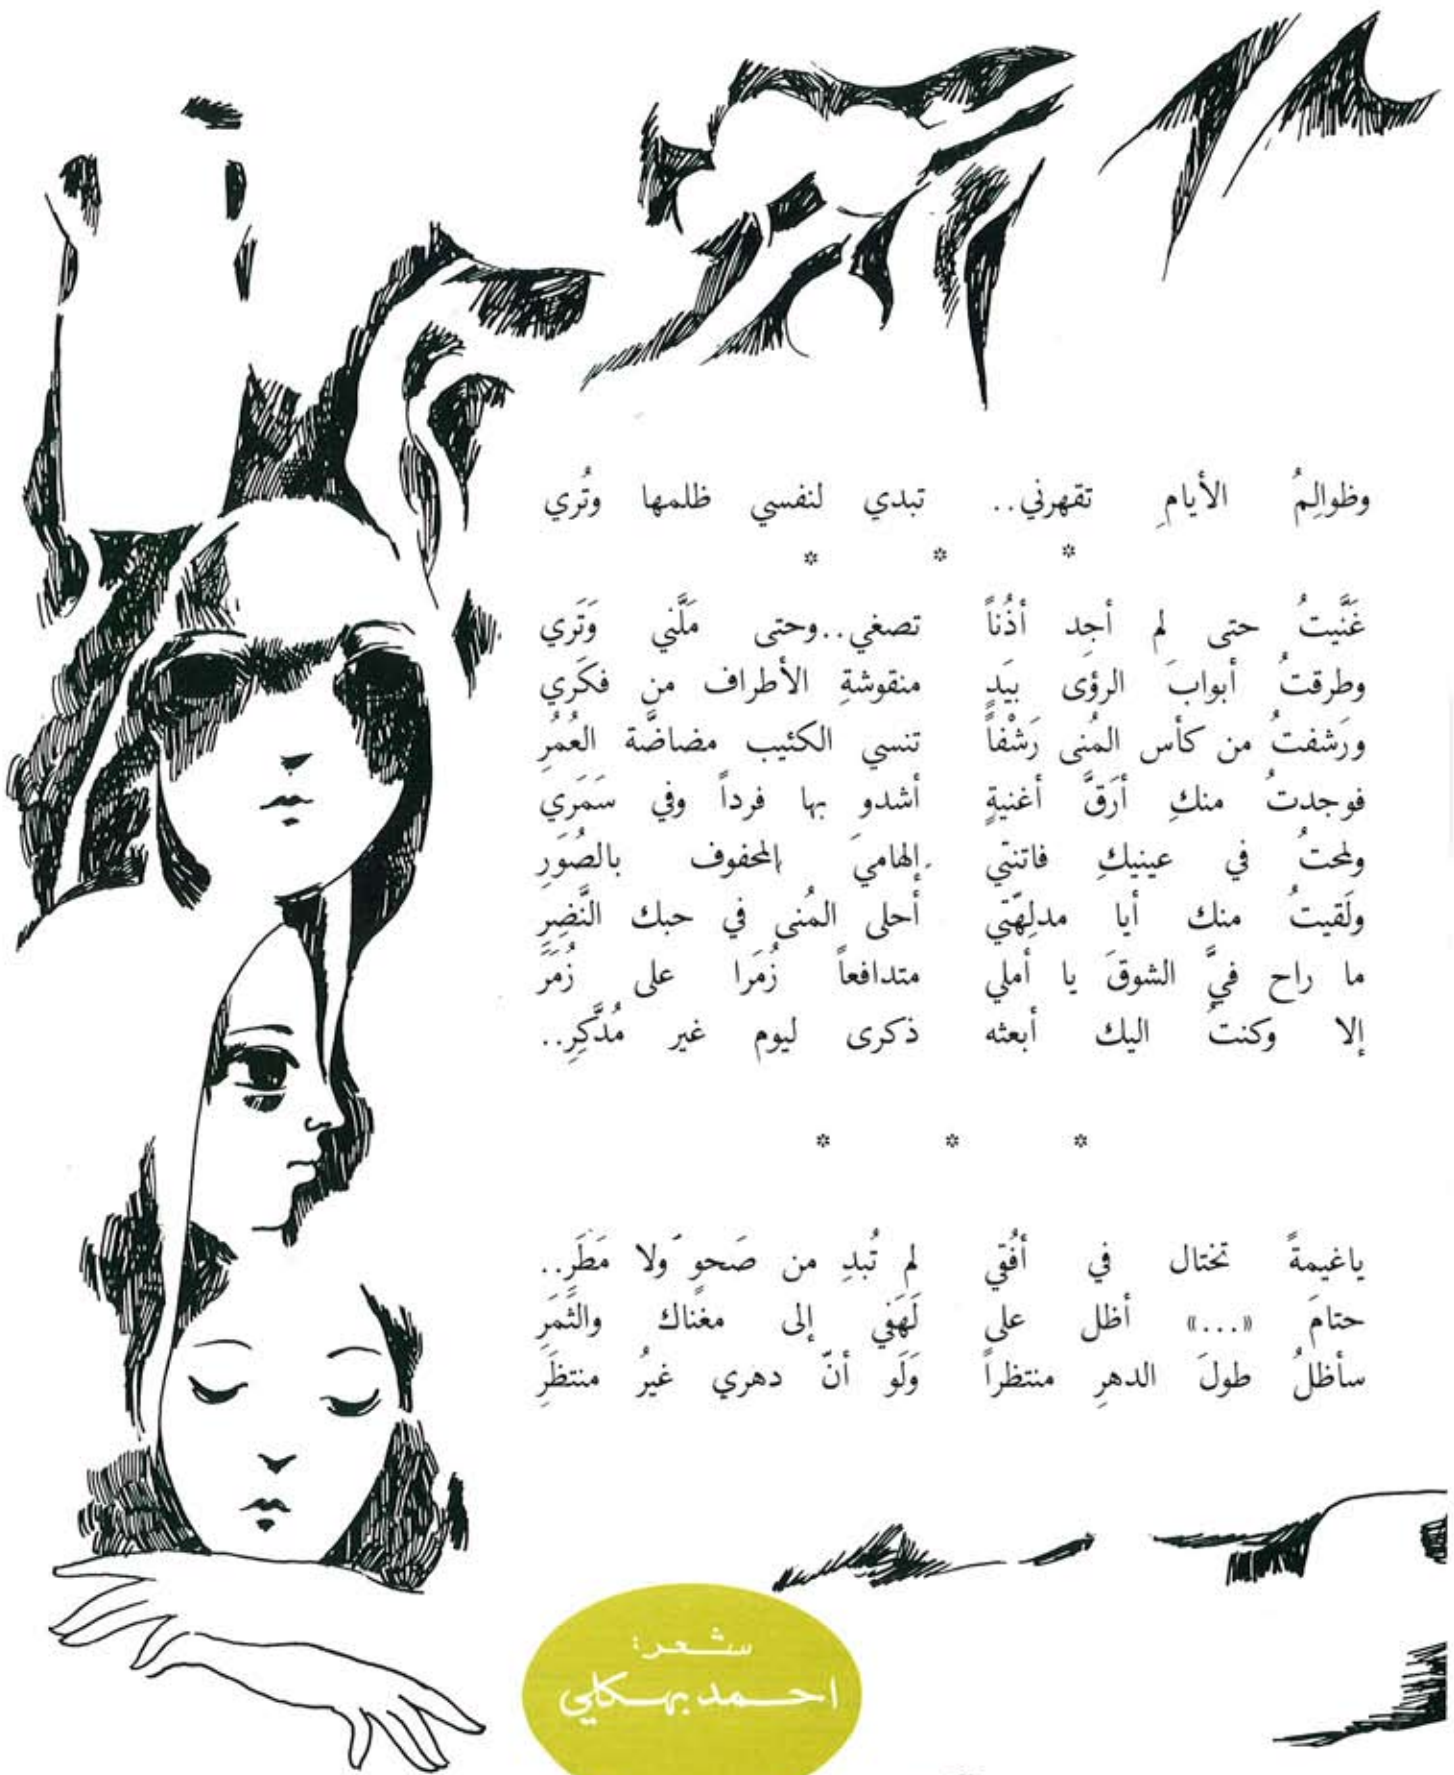 وظوالِمُ الأيامِ تقهرني.. تبدي لنفسي ظلمها وتُري
* * *
غَنَّيتُ حتى لم أجِد أذُناً تصغي..وحتى مَلَّني وَتَري
وطرقتُ أبوابَ الرؤى بيَدٍ منقوشةِ الأطراف من فكَري
ورَشفتُ من كأس المُنى رَشْفاً تنسي الكئيب مضاضَّة العُمُرِ
فوجدتُ منكِ أرَقَّ أغنيةٍ أشدو بها فرداً وفي سَمَري
ولمحتُ في عينيكِ فاتنتي إلهاميَ المحفوف بالصُوَرِ
ولَقيتُ منك أيا مدلِهّتي أحلى المُنى في حبك النَّضِرِ
ما راح فيَّ الشوقَ يا أملي متدافعاً زُمَرا على زُمَرَ
إلا وكنتُ اليك أبعثه ذكرى ليوم غير مُدَّكِرِ..
* * *
ياغيمةً تختال في أفُقي لم تُبدِ من صَحوٍ ولا مَطَرِ..
حتامَ «...» أظل على لَهَفي إلى مغناك والثَمَرِ
سأظلُ طولَ الدهرِ منتظراً وَلَو أنّ دهري غيرُ منتظَرِ
شعر:
احمد بهكلي